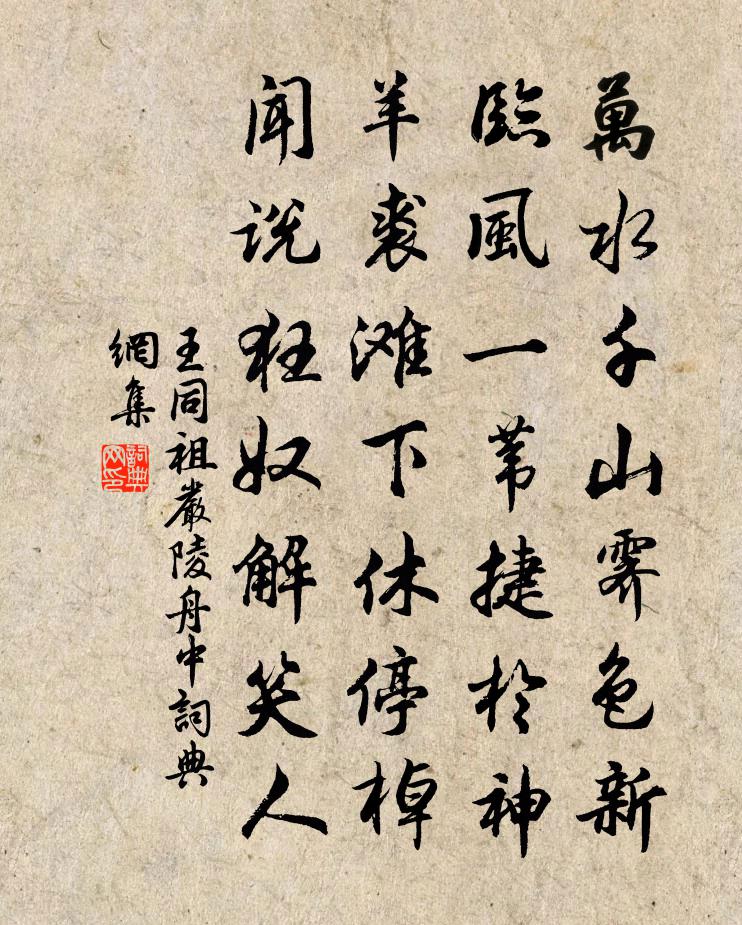 萬水千山霽色新
臨風一葦捷於神
羊裘滩下休停棹
闻说狂奴解笑人
王同祖嚴陵舟中詞典
網集
詞典
网印